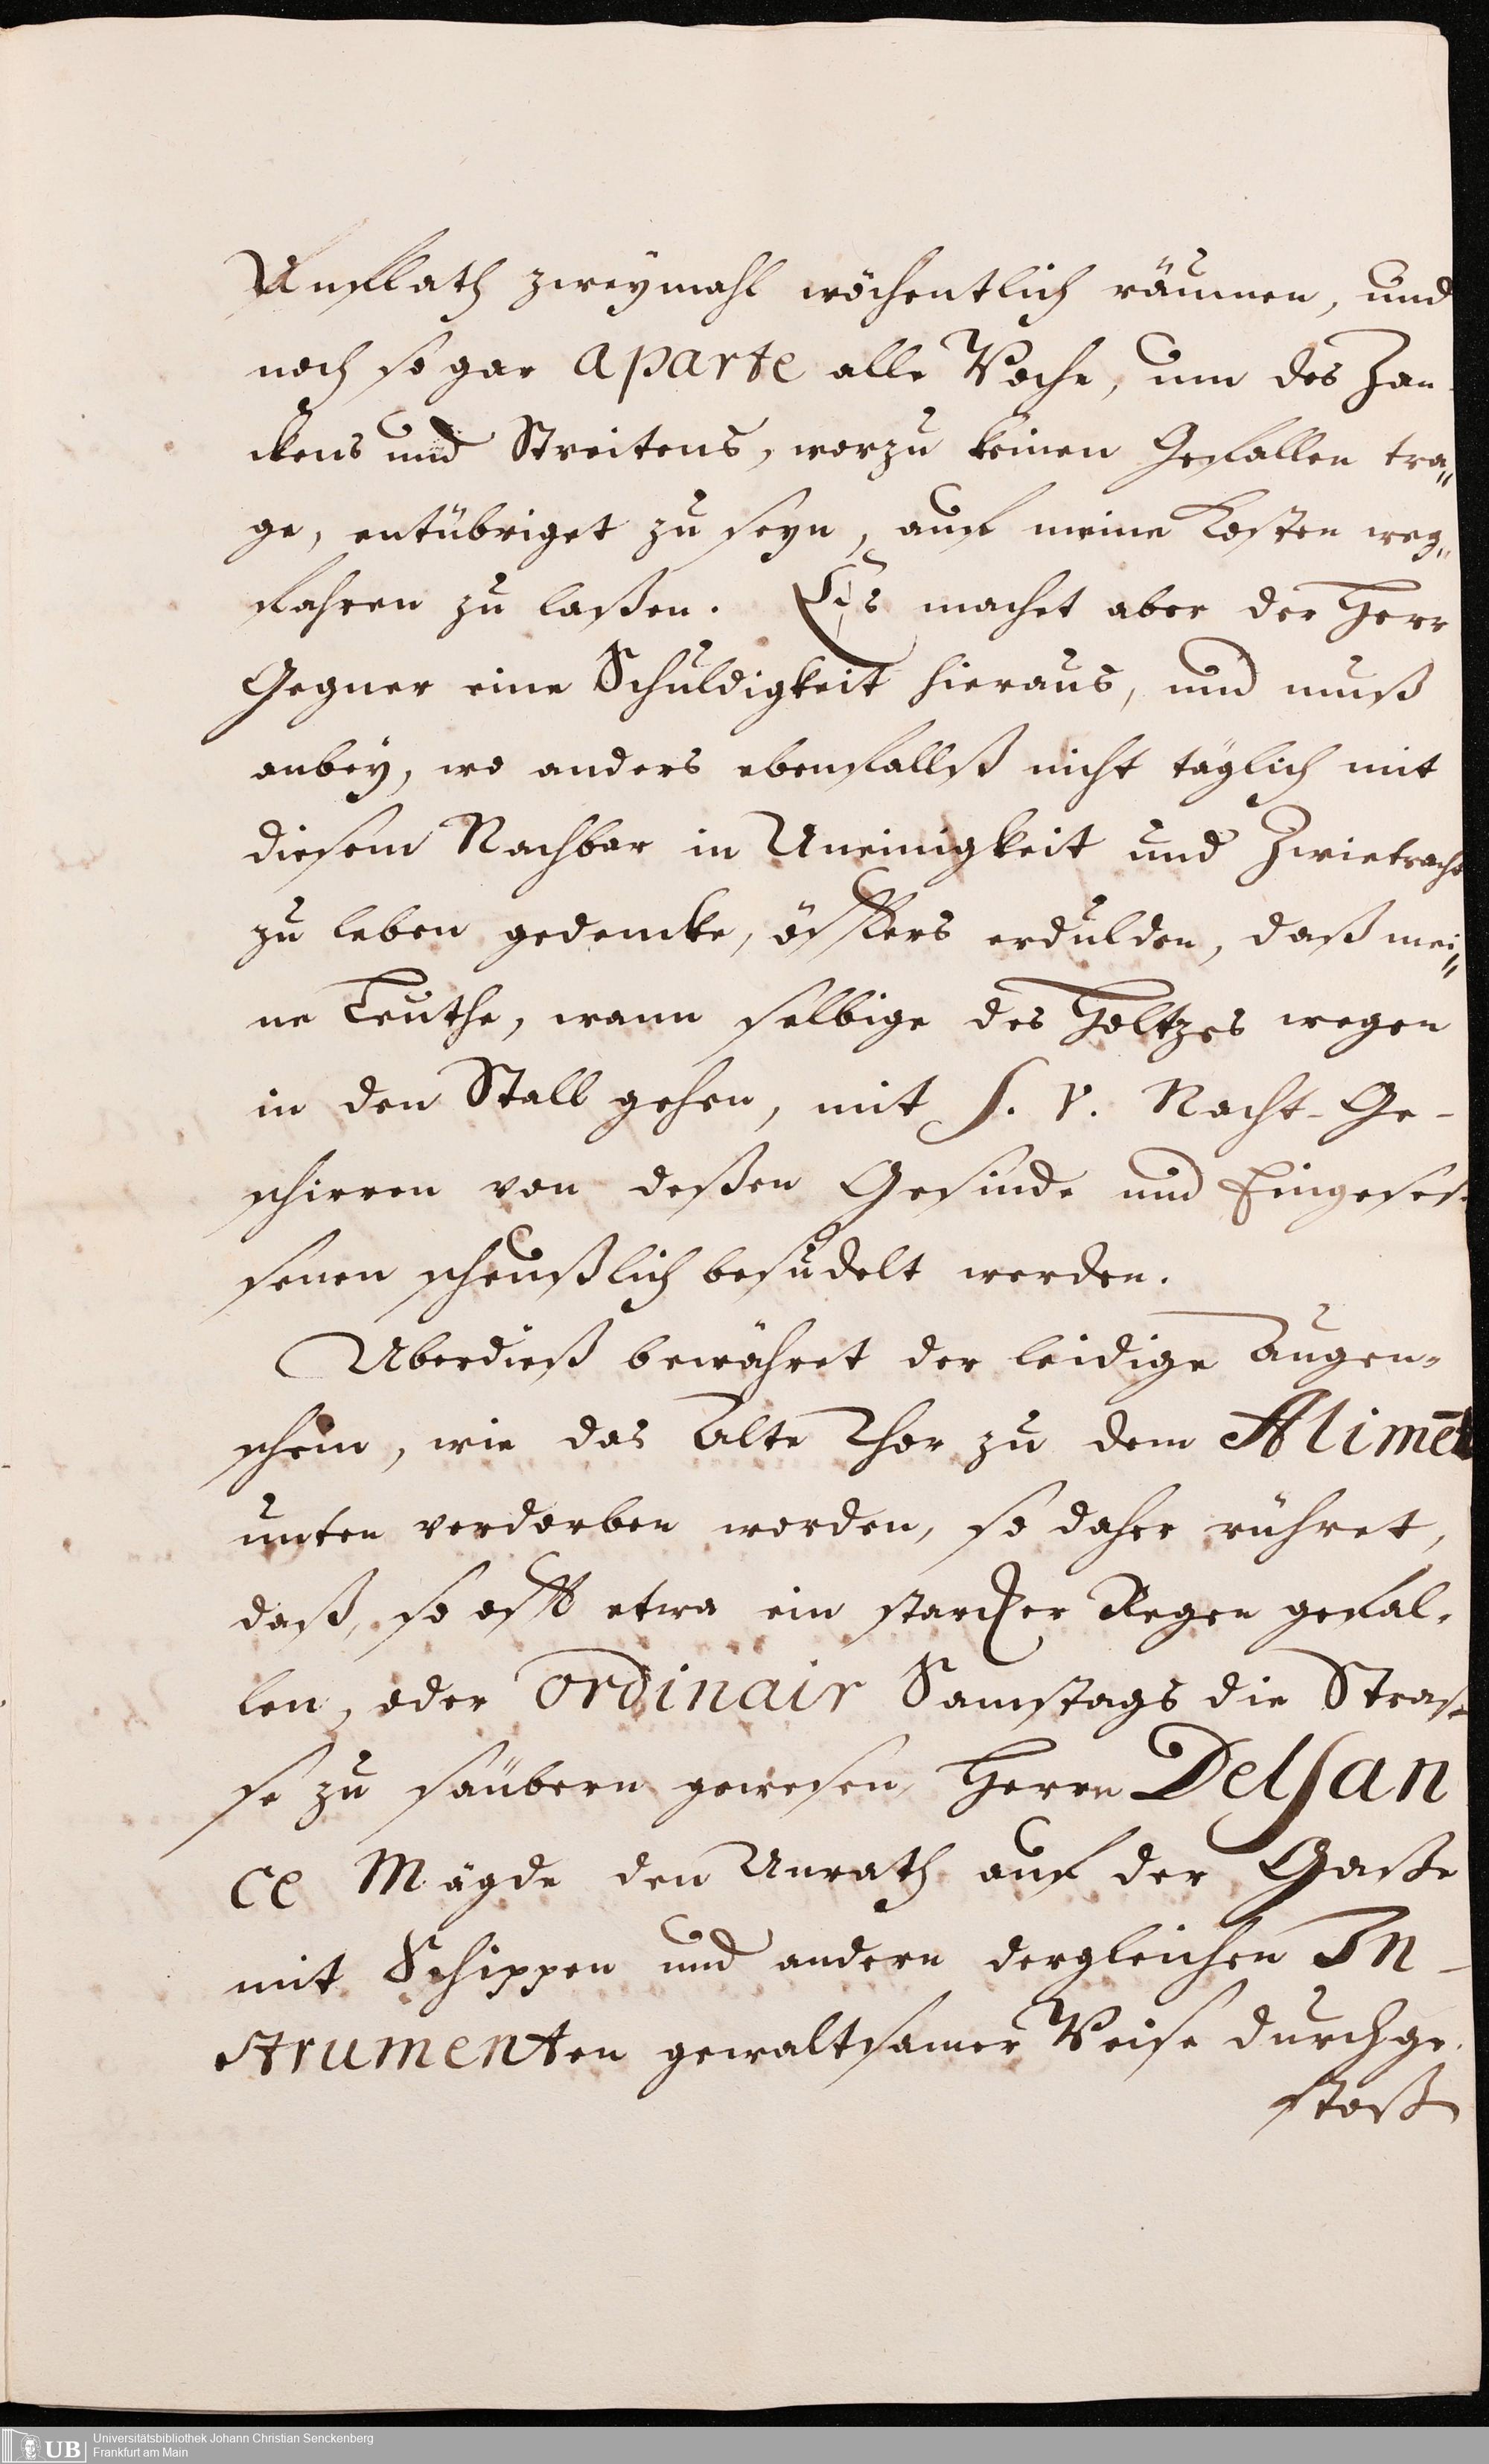 Unflath zweymahl wöchentlich räumen, und
noch so gar aparte alle Woche, um des Zan-
ckens und Streitens, worzu keinen Gefallen tra„
ge, entübriget zu seyn, auf meine Kosten weg„
fahren zu laßen. Es machet aber der Herr
Gegner eine Schuldigkeit hieraus, und muß
anbey, wo anders ebenfallß nicht täglich mit
diesem Nachbar in Uneinigkeit und Zwietracht
zu leben gedencke, öffters erdulden, daß mei„
ne Leuthe, wann selbige des Holtzes wegen
in den Stall gehen, mit S. V. Nacht-Ge-
schirren von deßen Gesinde und Eingeses-
senen scheußlich besudelt werden.
Uberdieß bewähret der leidige Augen-
schein, wie das Alte Thor zu dem Alimēt
unten verdorben worden, so daher rühret,
daß, so offt etwa ein starcker Regen gefal-
len, oder ordinair Samstags die Stras-
se zu säubern gewesen, Herrn Delsan
ce Mägde den Unrath auf der Gaße
mit Schippen und andern dergleichen In-
strumenten gewaltsamer Weise durchge-
stoß
Universitätsbibliothek Johann Christian Senckenberg
Frankfurt am Main
UB